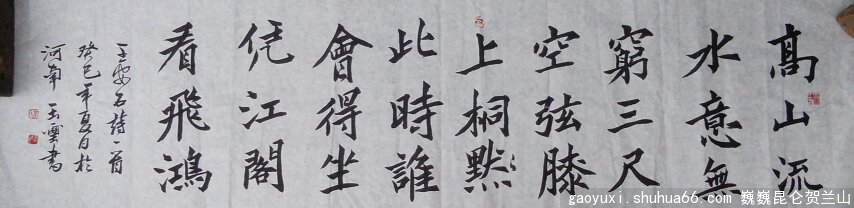 高山流
水意無
窮三尺
空弦膝
上桐默々
此時誰
會得坐
凭江閣
看飛鴻
王安石詩一首
癸巳年夏日於
河南 玉雲書
gaoyuxi.shuhua66.com 巍巍昆仑贺兰山